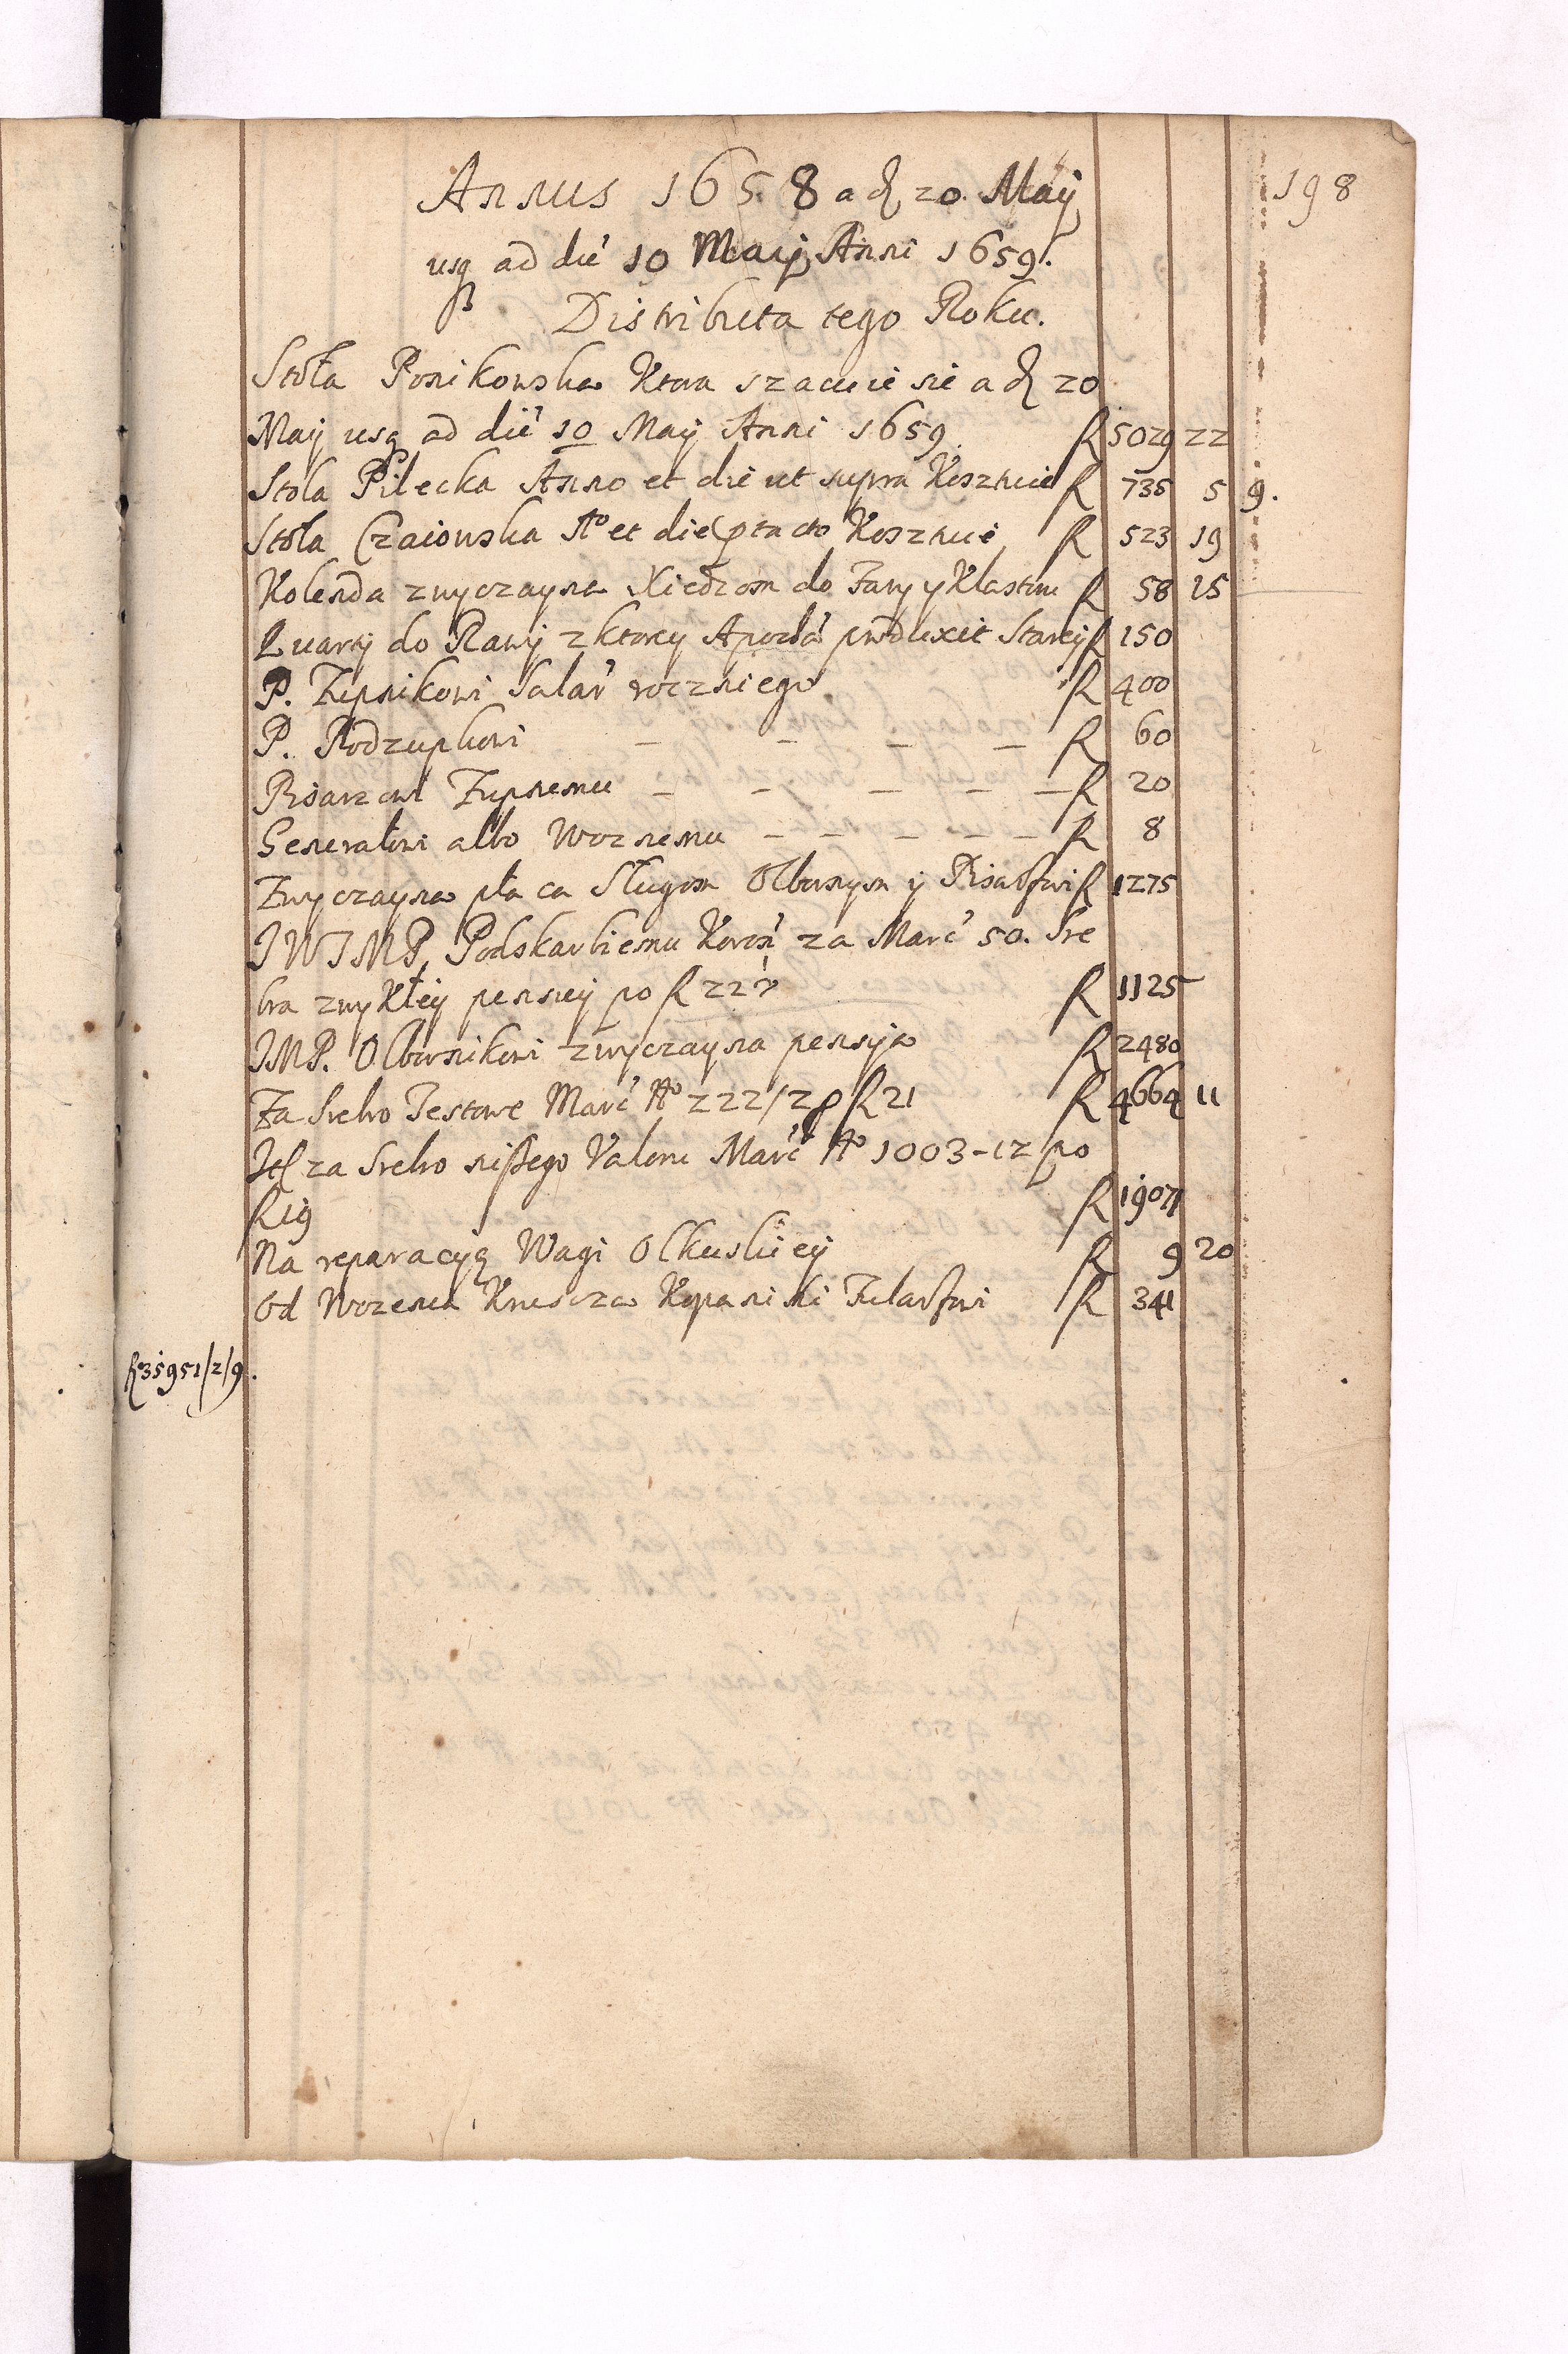 198
Annus 1658 a d 20. Maij
usq ad die 10 Maij Anni 1659.
Distributa tego Roku.
Stola Ponikowska Ktora szacuie sie a d 20
Maij usq ad die 10 Maij Anni 1659. fl 5029 22
Stola Pilecka Anno et die ut supra Kosztuie fl 735 5 9.
Stola Czaiowska Ao et die Kosztuie fl 523 19
Kolenda zwyczayna Xiedzom do Fary y Klasztoru fl 58 15
Quarty do Rawy z ktorey produxit Starey fl 150
P. Zupnikowi Salar roczniego fl 400
P. Podzupkowi — — — — fl 60
Pisarzowi Zupnemu — — — — — fl 20
Generalowi albo Woznemu — — — — — fl 8
Zwyczayna placa Slugom Olbornym y fl 1275
JWJMP. Podskarbiemu Koron za Marc 50. Sre
bra zwykley pensiey po fl 22½ fl 1125
JMP. Olbornikowi zwyczayna pensya fl 2480
Za Srebro Testowe Marc No 222/2 p fl 21 fl 4664 11
Itt za Srebro nißego Valoru Marc No 1003-12 po
fl 19 fl 19071
Na reparacyą Wagi Olkuskiey fl 9 20
Od Wozenia Kruszcza fl 341
fl 35951/2/9.